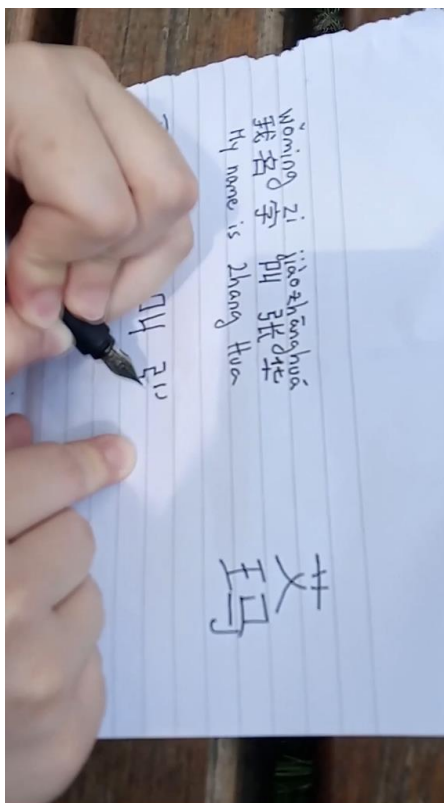 wǒmíng zì jiàozhānghuá
我名字叫张华
My name is Zhang Hua
叫
艾玛